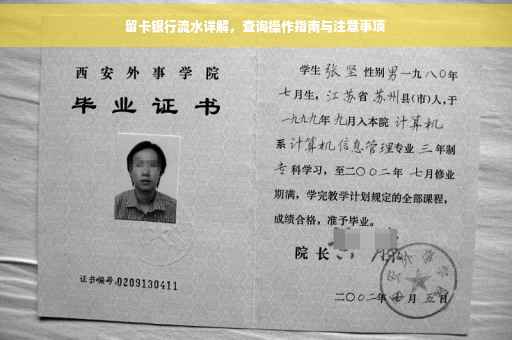 留卡银行流水详解，查询操作指南与注意事项
西安外事学院
毕业证书
证书编号:0209130411
学生 张坚 性别 男 一九八〇年
七月生，江苏省 苏州县(市)人，于
一九九九年 九月入本院 计算机
系 计算机信息管理专业 三 年制
专 科学习，至二〇〇二年 七月修业
期满，学完教学计划规定的全部课程，
成绩合格，准予毕业。
院长
二〇〇二年 月 五 日